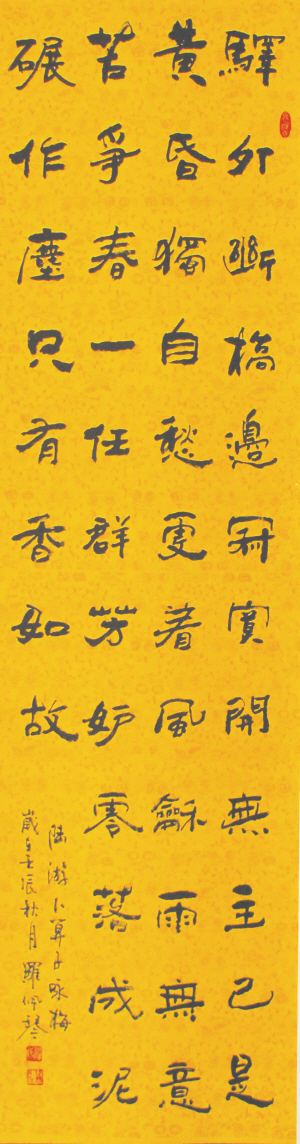 驛外斷橋邊寂寞開無主已是
黃昏獨自愁更着風龢雨無意
苦爭春一任群芳妒零落成泥
碾作塵只有香如故
陸游卜算子咏梅
歲在壬辰秋月羅佩琴